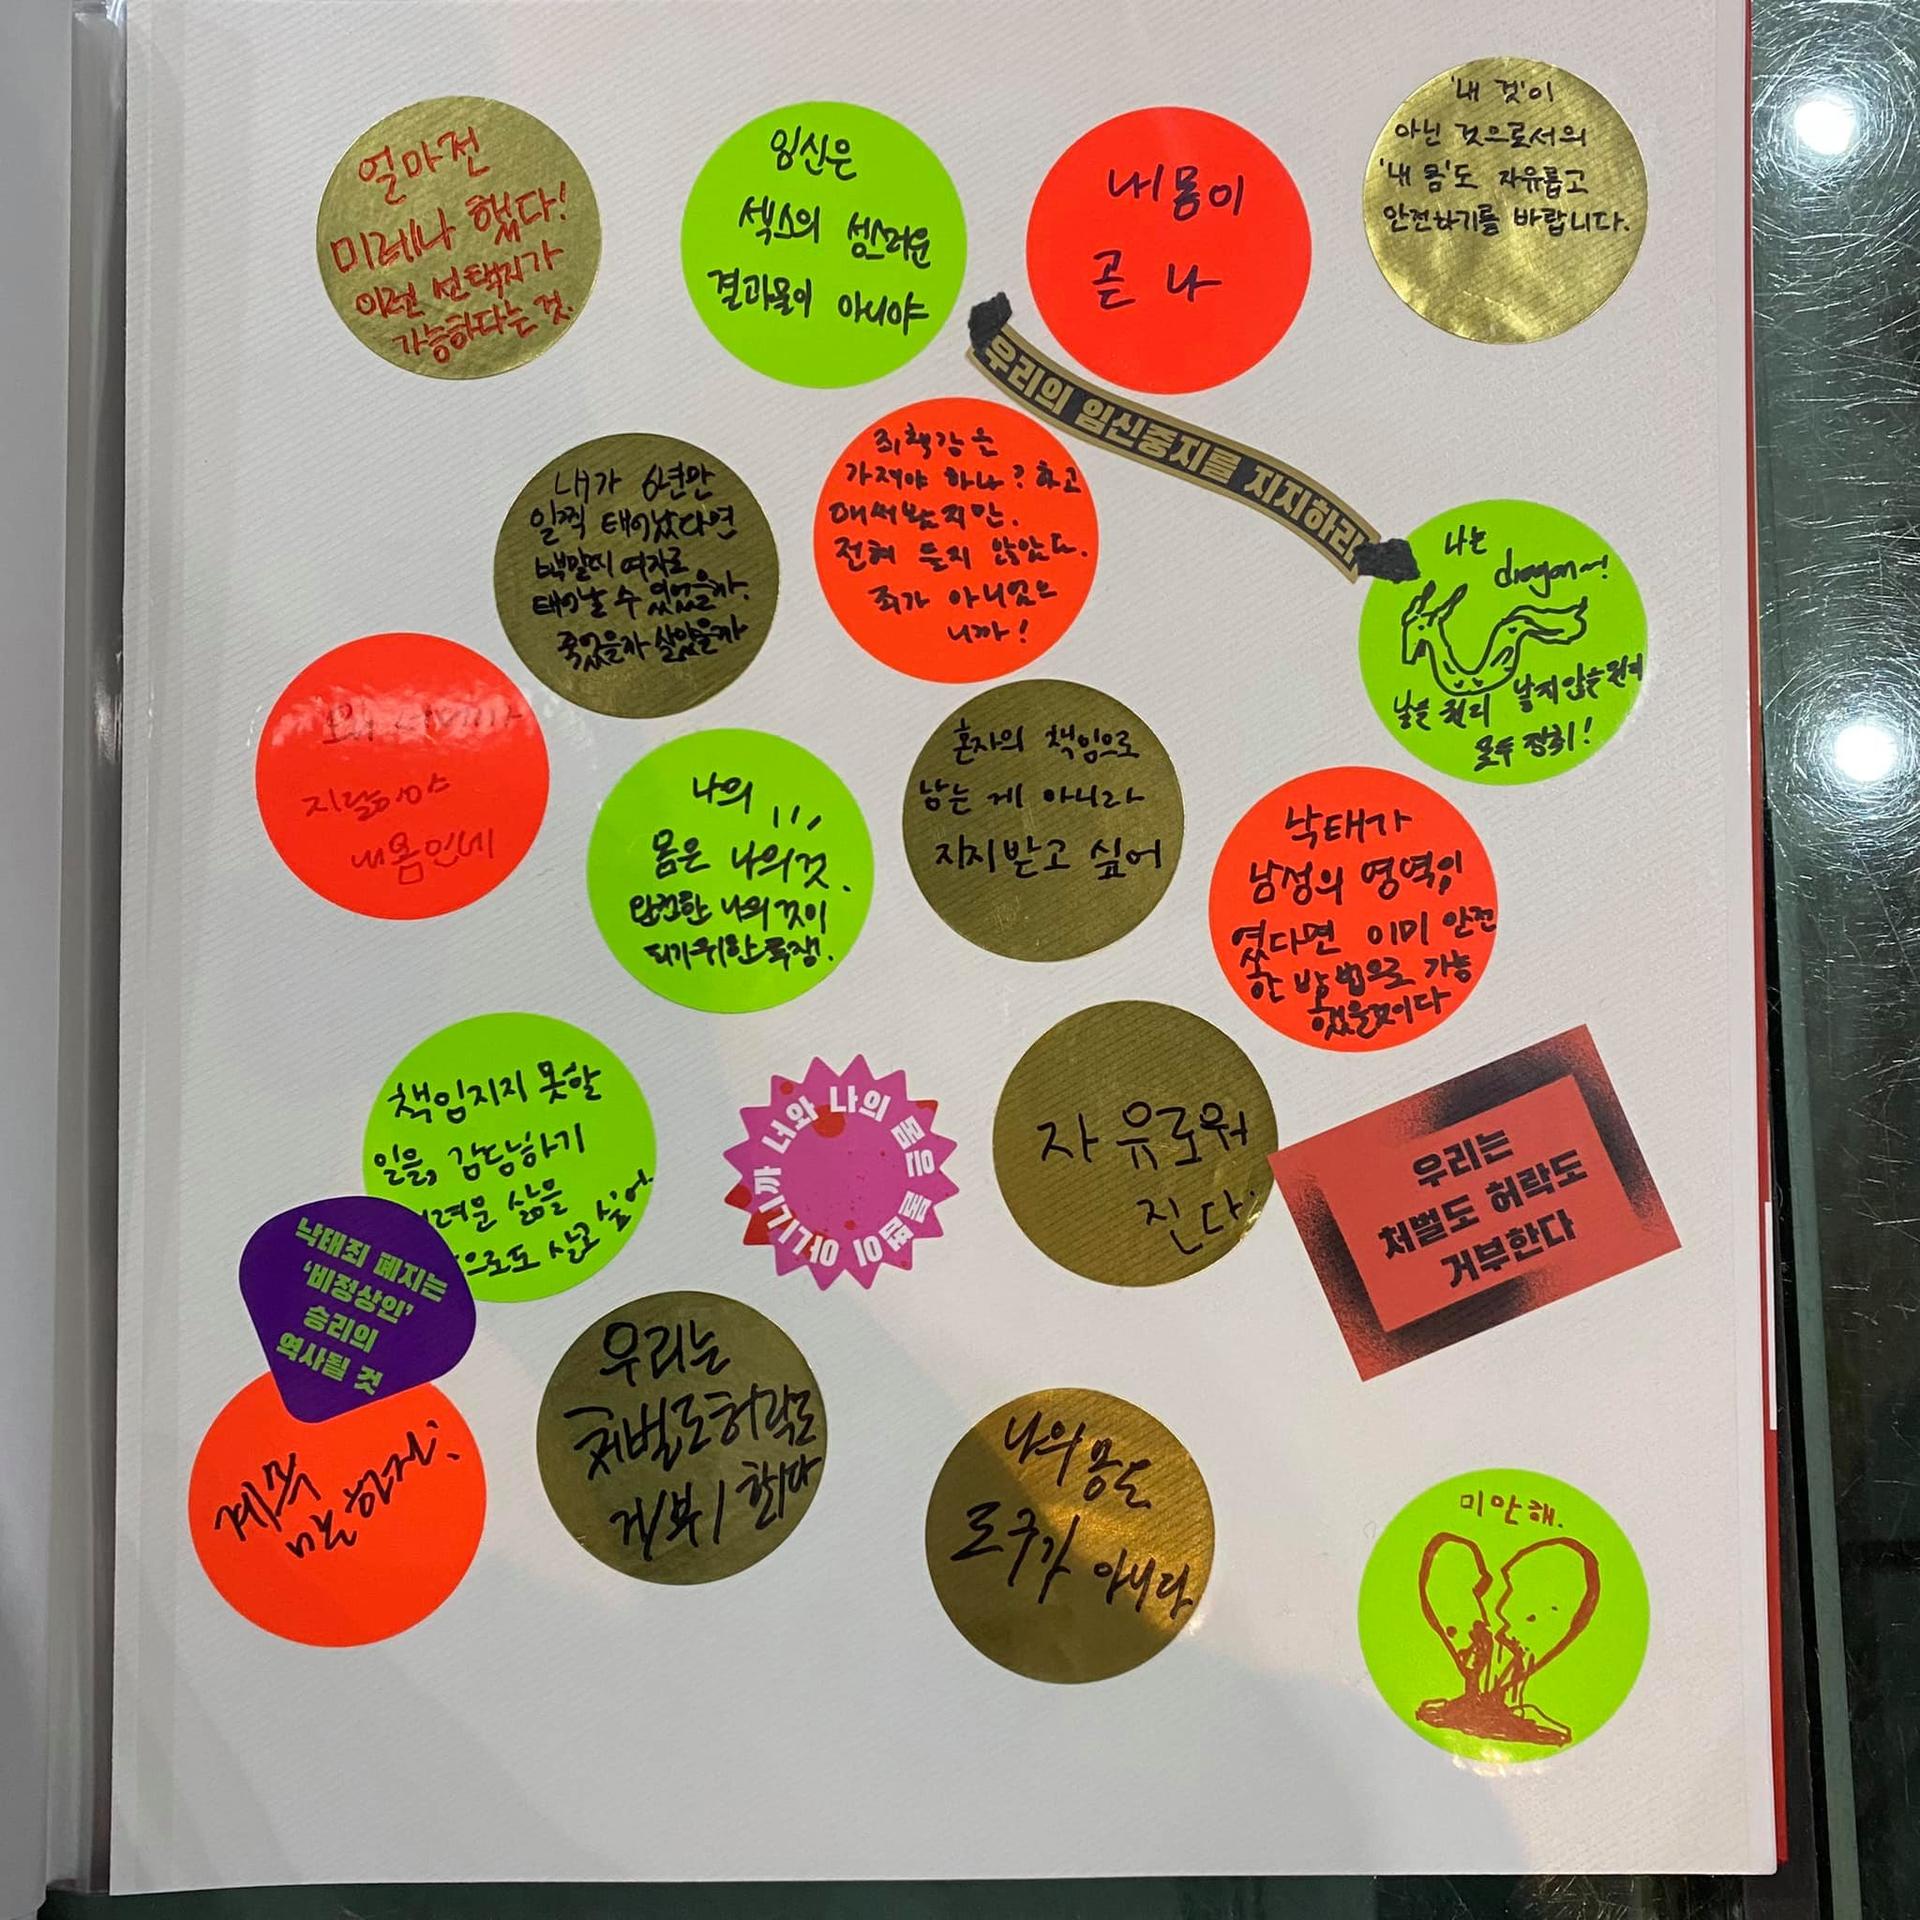 얼마전
미레나 했다!
이런 선택지가
가능하다는 것.
임신은
섹스의 성스러운
결과물이 아니야
내 몸이
곧 나
'내 것'이
아닌 것으로서의
'내 몸'도 자유롭고
안전하기를 바랍니다.
우리의 임신중지를 지지하라!
내가 6년만
일찍 태어났다면
백말띠 여자로
태어날 수 있었을까.
죽었을까 살았을까
죄책감은
가져야 하나? 하고
애써봤지만.
전혀 들지 않았다.
죄가 아니었으
니까!
나는
dragon~!
낳을 권리 낳지않을권리
모두 쟁취!
지랄이야
내몸인데
나의
몸은 나의 것.
안전한 나의 것이
되기위한 투쟁.
혼자의 책임으로
남는 게 아니라
지지받고 싶어
낙태가
남성의 영역이
였다면 이미 안전
한 방법으로 가능
했을것이다
책임지지 못할
일을, 감당하기
려운 삶을
으로도 살고 싶어.
너와 나의 몸은 불법이 아니니까
자유로워
진다.
우리는
처벌도 허락도
거부한다
낙태죄 폐지는
'비정상인'
승리의
역사될 것
계속
말하자!
우리는
처벌도 허락도
거/부/한/다
나의 몸은
도구가 아니다
미안해.